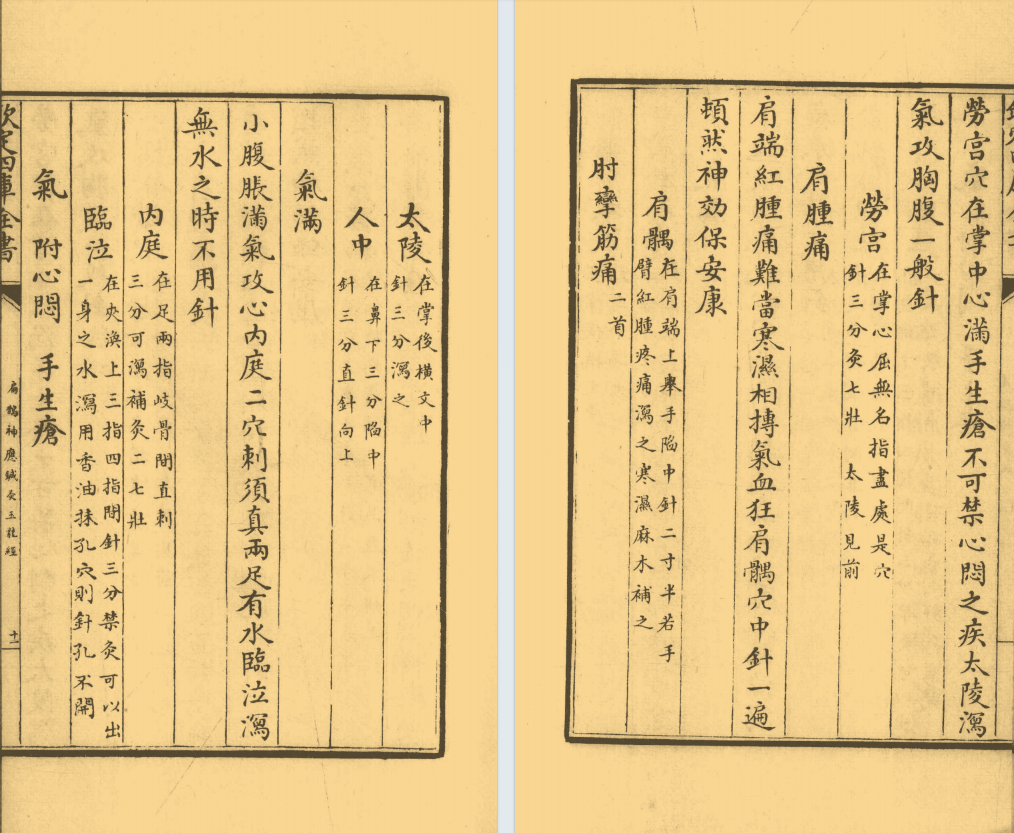 太陵 在掌後橫文中
針三分瀉之
人中 在鼻下三分陷中
針三分直針向上
氣滿
小腹脹滿氣攻心内庭二穴刺須真兩足有水臨泣瀉
無水之時不用針
内庭 在足兩指岐骨間直刺
三分可瀉補灸二七壯
臨泣 在夾渙上三指四指間針三分禁灸可以出
一身之水瀉用香油抹孔穴則針孔不開
氣 附心悶 手生瘡
欽定四庫全書
扁鵲神應鍼灸玉龍經
十一
勞宮穴在掌中心滿手生瘡不可禁心悶之疾太陵瀉
氣攻胸腹一般針
勞宮 在掌心屈無名指盡處是穴
針三分灸七壯 太陵見前
肩腫痛
肩端紅腫痛難當寒濕相搏氣血狂肩髃穴中針一遍
頓然神効保安康
肩髃 在肩端上舉手陷中針二寸半若手
臂紅腫疼痛瀉之寒濕麻木補之
肘攣筋痛 二首